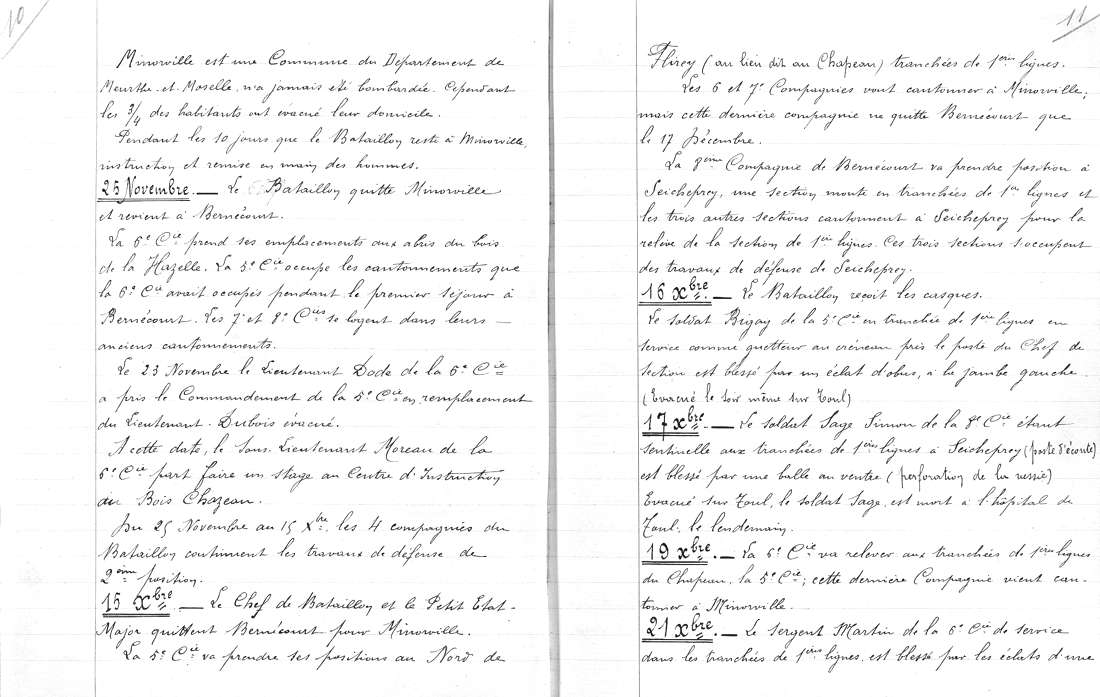 10
Minorville est une Commune du Département de
Meurthe-et-Moselle, n'a jamais été bombardée. Cependant
les 3/4 des habitants ont évacué leur domicile.
Pendant les 10 jours que le Bataillon reste à Minorville,
instruction et remise en main des hommes.
25 Novembre. — Le Bataillon quitte Minorville
et revient à Bernécourt.
La 6e Cie prend ses emplacements aux abris du bois
de la Hazelle. La 5e Cie occupe les cantonnements que
la 6e Cie avait occupés pendant le premier séjour à
Bernécourt. Les 7e et 8e Cies se logent dans leurs —
anciens cantonnements.
Le 23 Novembre le Lieutenant Dode de la 6e Cie
a pris le Commandement de la 5e Cie en remplacement
du Lieutenant Dubois évacué.
A cette date, le Sous-Lieutenant Moreau de la
6e Cie part faire un stage au Centre d'Instruction
du Bois Chazeau.
Du 25 Novembre au 15 Xbre, les 4 compagnies du
Bataillon continuent les travaux de défense de
2ème position.
15 Xbre. — Le Chef de Bataillon et le Petit Etat-
Major quittent Bernécourt pour Minorville.
La 5e Cie va prendre ses positions au Nord de
11
Flirey (au lieu dit au Chapeau) tranchées de 1ères lignes.
Les 6 et 7e Compagnies vont cantonner à Minorville;
mais cette dernière compagnie ne quitte Bernécourt que
le 17 Décembre.
La 8ème Compagnie de Bernécourt va prendre position à
Seicheprey, une section monte en tranchées de 1ères lignes et
les trois autres sections cantonnent à Seicheprey pour la
relève de la section de 1ères lignes. Ces trois sections s'occupent
des travaux de défense de Seicheprey.
16 Xbre. — Le Bataillon reçoit les casques.
Le soldat Bigay de la 5e Cie en tranchée de 1ères lignes en
service comme guetteur au créneau près le poste du Chef de
section est blessé par un éclat d'obus, à la jambe gauche
(Evacué le soir même sur Toul)
17 Xbre. — Le soldat Sage Simon de la 8e Cie étant
sentinelle aux tranchées de 1ères lignes à Seicheprey (poste d'écoute)
est blessé par une balle au ventre (perforation de la vessie)
Evacué sur Toul, le soldat Sage, est mort à l'hôpital de
Toul, le lendemain.
19 Xbre. — La 6e Cie va relever aux tranchées de 1ères lignes
du Chapeau, la 5e Cie; cette dernière Compagnie vient can-
tonner à Minorville.
21 Xbre. — Le sergent Martin de la 6e Cie de service
dans les tranchées de 1ères lignes, est blessé par les éclats d'une